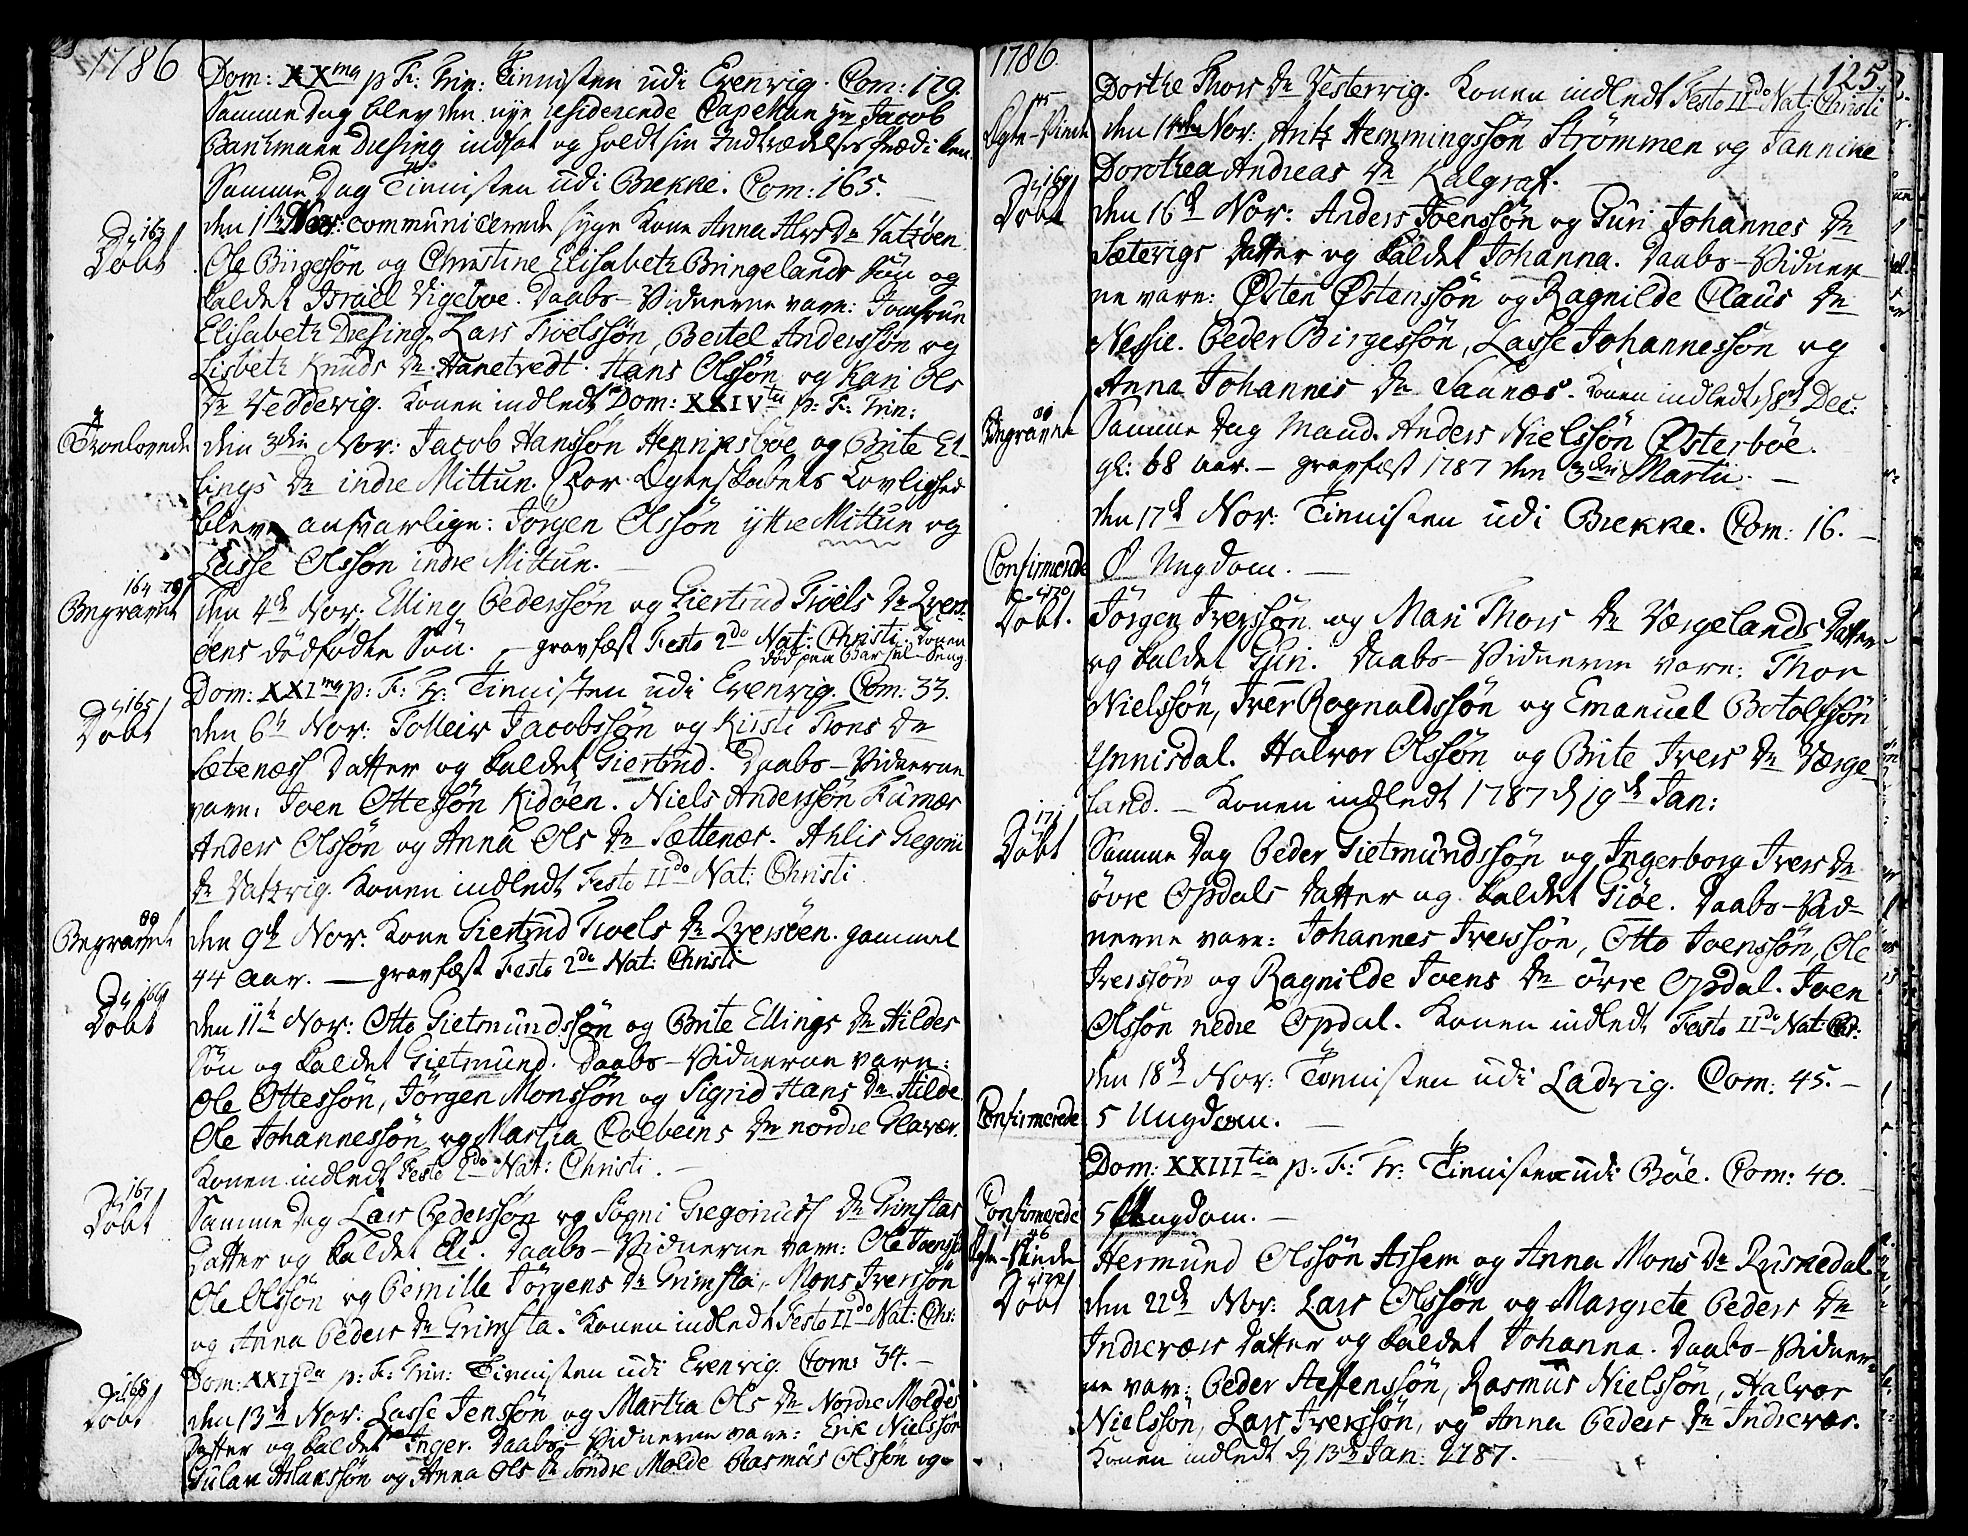 1786
Dom: XXma p: F: Trin: Tienisten udi Evenvig. Com: 179.
Samme Dag blev den nye residerende Capellan Hr Jacob
Danchmann Diesing indsat og holdt sin Indtrædelses Prædiken.
Samme Dag Tienisten udi Brekke. Com: 165.
den 1ste Nov: communicerede syge Kone Anna Alvs de Vatzøen
163
Døbt
Ole Birgessøn og Christine Elisabeth Bringelands Søn og
kaldet Israel Vigeboe. Daabs-Vidnerne vare: Jomfrue
Elisabeth Diesing. Lars Troelssøn, Bertel Anderssøn og
Lisbeth Knuds de Hanetvedt. Hans Olssøn og Kari Ols
de Veddevig. Konen indledt Dom: XXIVta p: F: Trin:
Troelovede
den 3die Nov: Jacob Hanssøn Henriksbøe og Brite El-
lings de indre Mittun. For Ægteskabets Lovlighed
bleve ansvarlige: Jørgen Olssøn yttre Mittun og
Lasse Olssøn indre Mittun.
164 79
Begravet
den 4de Nov: Elling Pederssøn og Giertrud Troels de Qvers-
øens dødfødte Søn. — gravfæst Festo 2do Nat: Christi. Konen
død paa Barsel-Seng
Dom: XXIma p: F: Tr: Tienisten udi Evenvig. Com: 33.
165
Døbt
den 6te Nov: Tolleiv Jacobssøn og Kirsti Thors de
Sætenes Datter og kaldet Giertrud. Daabs-Vidnerne
vare: Joen Ottessøn Kidøen. Niels Anderssøn Furnæs
Anders Olssøn og Anna Ols de Sættenes. Ahlis Gregorii
de Vatzvig. Konen indledt Festo IIdo Nat: Christi
80
Begravet
den 9de Nov: Kone Giertrud Troels de Qversøen. gammel
44 Aar. — gravfæst Festo 2do Nat: Christi
166
Døbt
den 11te Nov: Otto Gietmundssøn og Brite Ellings de Hildes
Søn og kaldet Gietmund. Daabs-Vidnerne vare:
Ole Ottessøn, Jørgen Monssøn og Sigrid Hans de Hilde
Ole Johannessøn og Martha Colbeins de nordre Glavær.
Konen indledt Festo 2do Nat: Christi.
167
Døbt
Samme Dag Lars Pederssøn og Sogni Gregorius de Grimstas
Datter og kaldet Eli. Daabs-Vidnerne vare: Ole Joenssøn
Ole Olssøn og Pernille Jørgens de Grimsta, Mons Iverssøn
og Anna Peders de Grimsta. Konen indledt Festo IIdo Nat: Chr:
Dom: XXIIda p: F: Trin: Tienisten udi Evenvig. Com: 34.
168
Døbt
den 13de Nov: Lasse Jenssøn og Martha Ols de Nordre Moldes
Datter og kaldet Inger. Daabs-Vidnerne vare: Erik Nielssøn
Gulak Aslakssøn og Anna Ols de Søndre Molde Rasmus Olssøn og
1786
125
Dorthe Thors de Vestervig. Konen indledt Festo IIdo Nat: Christi
Ægte-Viede
den 14de Nov: Fritz Hemmingssøn Strømmen og Jannine
Dorothea Andreas de Kalgraf.
169
Døbt
den 16de Nov: Anders Joenssøn og Guri Johannes de
Sætevigs Datter og kaldet Johanna. Daabs-Vidner-
ne vare: Østen Østenssøn og Ragnilde Claus de
Nessie. Peder Birgessøn, Lasse Johannessøn og
Anna Johannes de Saunæs. Konen indledt d 8de Dec:
Begravet
Samme Dag Mand. Anders Nielssøn Østerbøe.
gl: 68 Aar. — gravfæst 1787 den 3die Martii.
den 17de Nov: Tienisten udi Brekke. Com: 16.
Confirmerede
Ø Ungdom.
170
Døbt.
Jørgen Iverssøn og Mari Thors de Værgelands Datter
og kaldet Guri. Daabs-Vidnerne vare: Thor
Nielssøn, Iver Ragnaldssøn og Emanuel Botolfssøn
Ynnisdal. Halvor Olssøn og Brite Ivers de Værge-
land. — Konen indledt 1787 d 19de Jan:
171
Døbt
Samme Dag Peder Gietmundssøn og Ingerborg Ivers de
øvre Opdals Datter og kaldet Giøe. Daabs-Vid-
nerne vare: Johannes Iverssøn, Otto Joenssøn, Ole
Iverssøn og Ragnilde Joens de øvre Opdal. Joen
Olssøn nedre Opdal. Konen indledt Festo IIdo Nat: Chr:
den 18de Nov: Tienisten udi Ladvig. Com: 45.
Confirmerede
5 Ungdom.
Dom: XXIIItia p: F: Tr: Tienisten udi Bøe. Com: 40.
Confirmerede
5 Ungdom.
46
Ægte-Viede
Hermund Olssøn Assem og Anna Mons de Ruskedal.
172
Døbt
den 22de Nov: Lars Olssøn og Margrete Peders de
Indrevær Datter og kaldet Johanna. Daabs-Vidner-
ne vare: Peder Steffenssøn, Rasmus Nielssøn, Halvor
Nielssøn, Lars Iverssøn, og Anna Peders de Indrevær.
Konen indledt d 13de Jan: 1787.